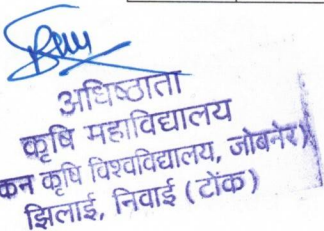 अधिष्ठाता
कृषि महाविद्यालय
कृषि विश्वविद्यालय, जोबनेर)
झिलाई, निवाई (टोंक)